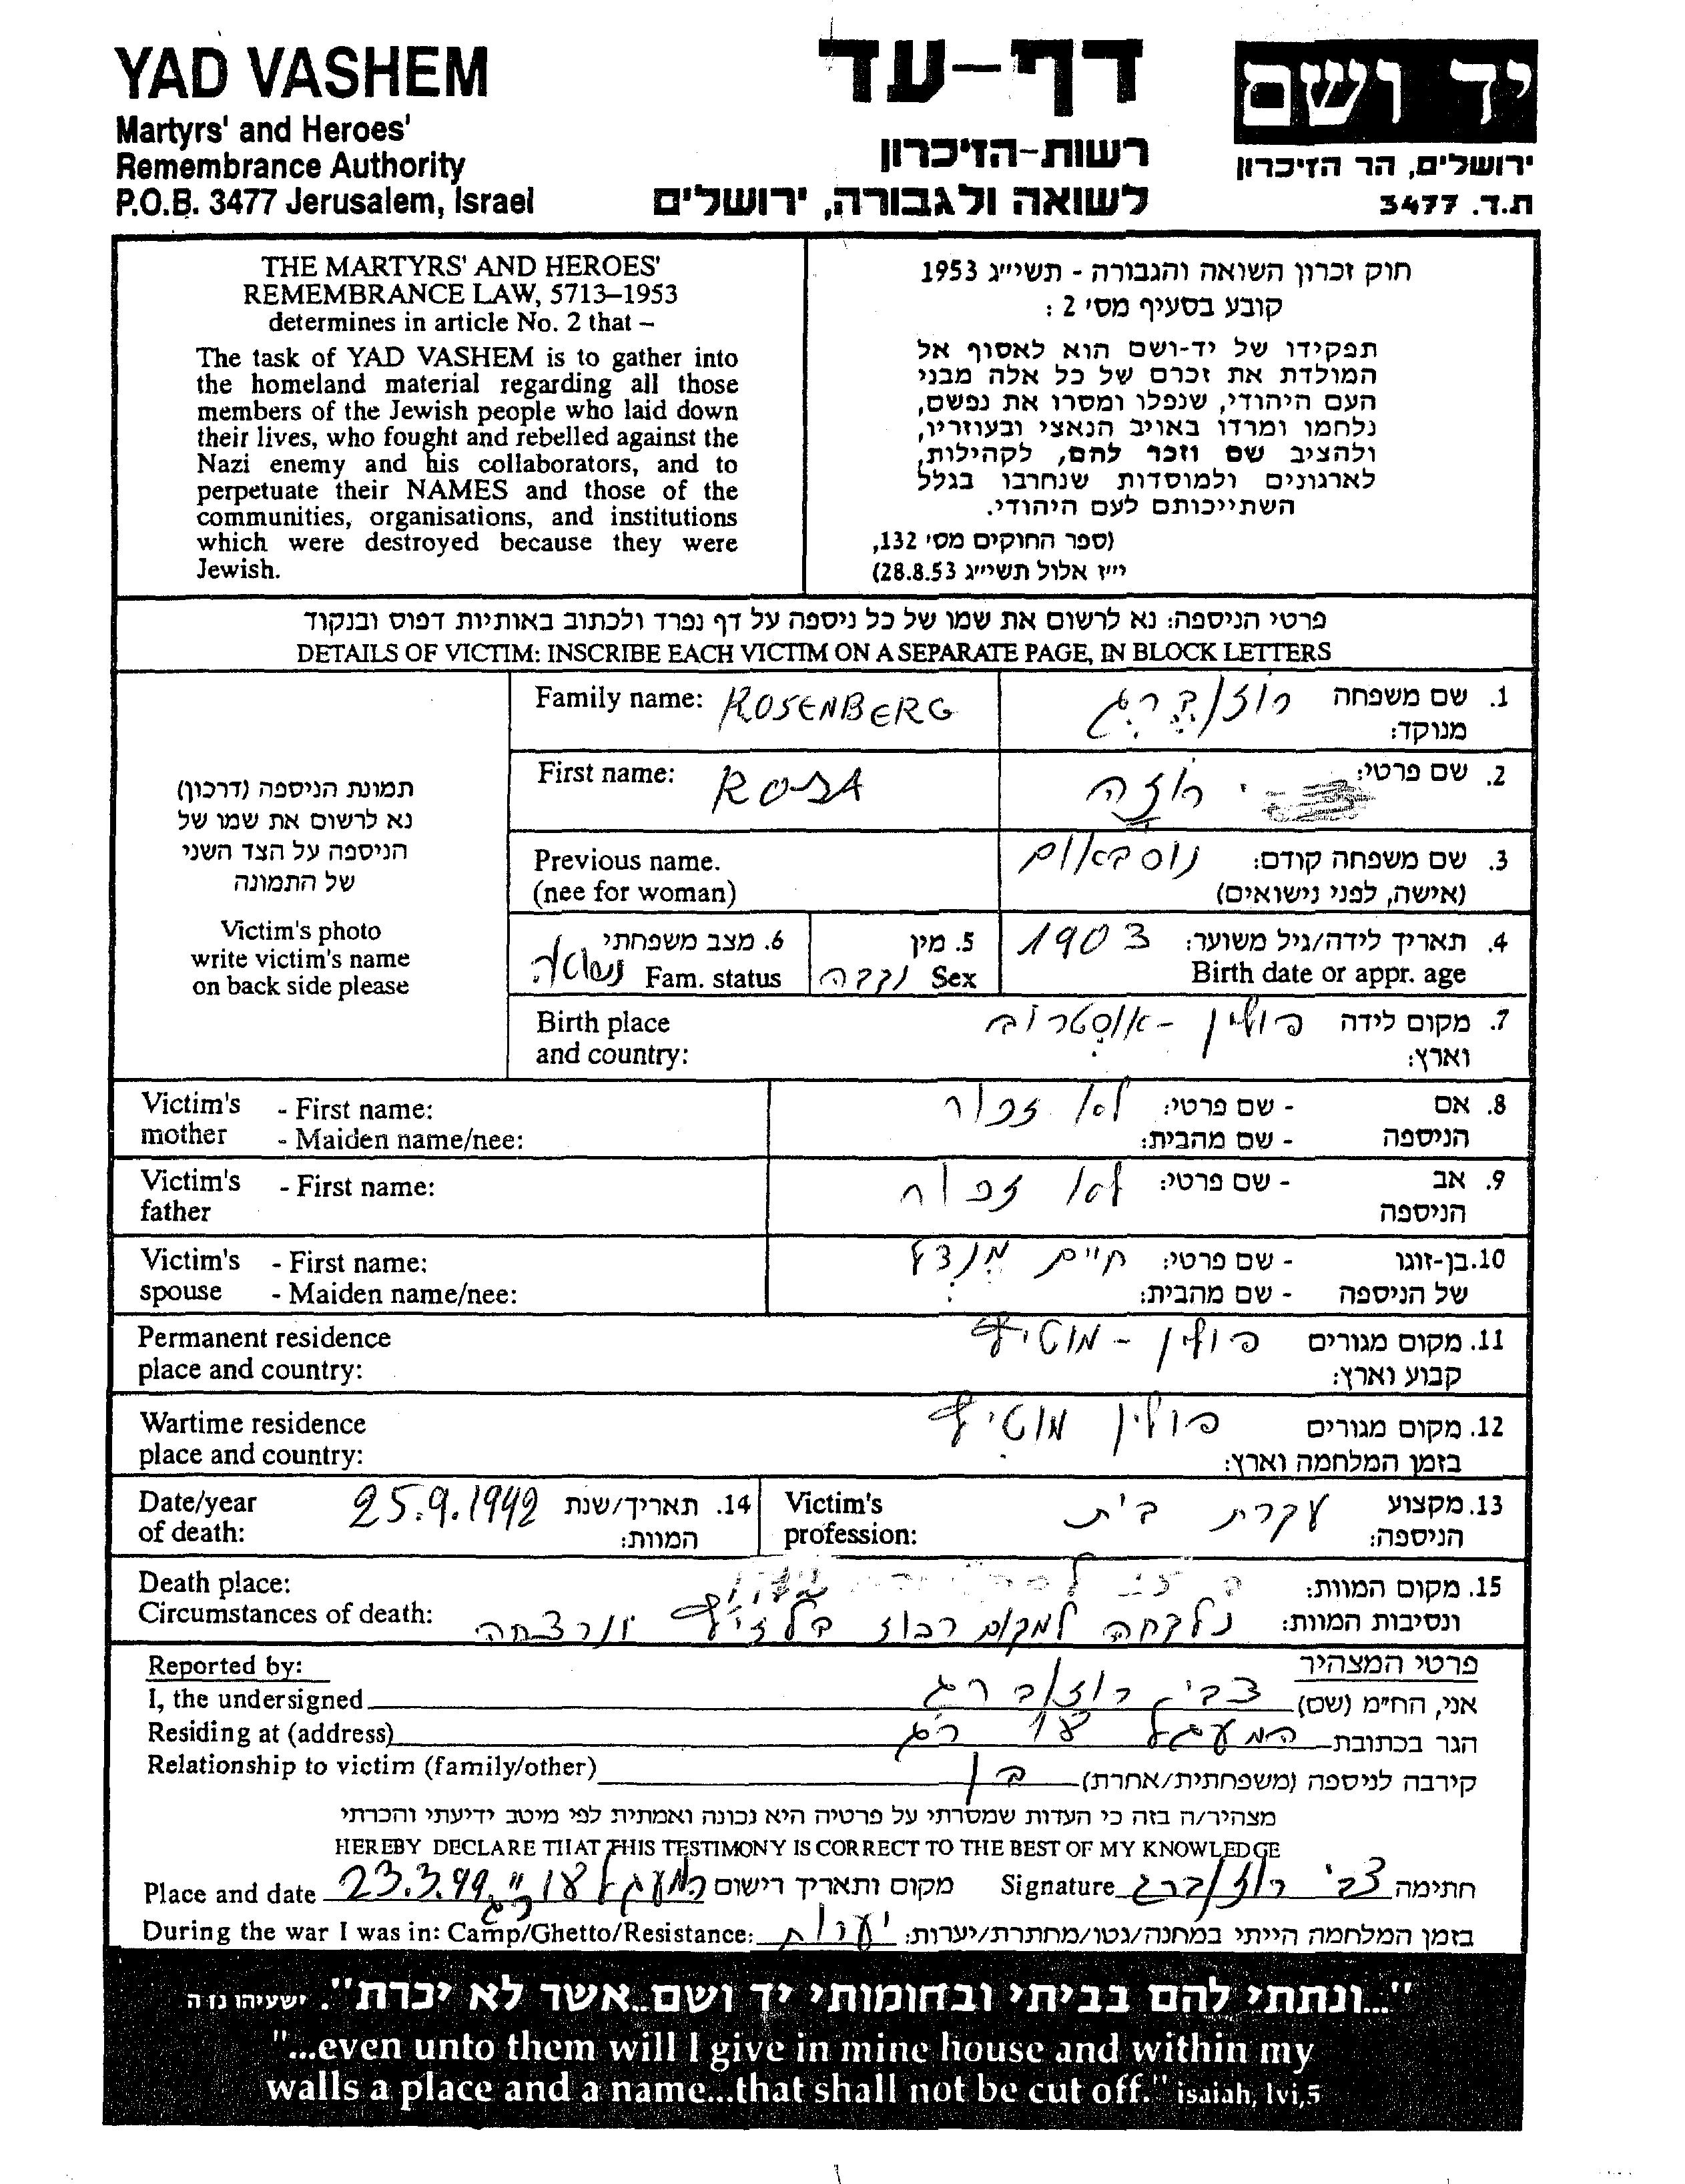 YAD VASHEM
Martyrs' and Heroes'
Remembrance Authority
P.O.B. 3477 Jerusalem, Israel
דף-עד
רשות-הזיכרון
לשואה ולגבורה, ירושלים
יד ושם
ירושלים, הר הזיכרון
ת.ד. 3477
THE MARTYRS' AND HEROES'
REMEMBRANCE LAW, 5713–1953
determines in article No. 2 that –
The task of YAD VASHEM is to gather into
the homeland material regarding all those
members of the Jewish people who laid down
their lives, who fought and rebelled against the
Nazi enemy and his collaborators, and to
perpetuate their NAMES and those of the
communities, organisations, and institutions
which were destroyed because they were
Jewish.
חוק זכרון השואה והגבורה - תשי״ג 1953
קובע בסעיף מס׳ 2 :
תפקידו של יד-ושם הוא לאסוף אל
המולדת את זכרם של כל אלה מבני
העם היהודי, שנפלו ומסרו את נפשם,
נלחמו ומרדו באויב הנאצי ובעוזריו,
ולהציב שם וזכר להם, לקהילות,
לארגונים ולמוסדות שנחרבו בגלל
השתייכותם לעם היהודי.
(ספר החוקים מס׳ 132,
י״ז אלול תשי״ג 28.8.53)
פרטי הניספה: נא לרשום את שמו של כל ניספה על דף נפרד ולכתוב באותיות דפוס ובנקוד
DETAILS OF VICTIM: INSCRIBE EACH VICTIM ON A SEPARATE PAGE, IN BLOCK LETTERS
תמונת הניספה (דרכון)
נא לרשום את שמו של
הניספה על הצד השני
של התמונה
Victim's photo
write victim's name
on back side please
Family name: ROSENBERG
1. שם משפחה רוזנברג
מנוקד:
First name: ROSA
2. שם פרטי: רוזה
Previous name.
(nee for woman)
3. שם משפחה קודם: נוסבאום
(אישה, לפני נישואים)
4. תאריך לידה/גיל משוער: 1903
Birth date or appr. age
5. מין
Sex נקבה
6. מצב משפחתי
Fam. status נשואה
Birth place
and country:
7. מקום לידה פולין - אוסטרוב
וארץ:
Victim's mother - First name:
- Maiden name/nee:
8. אם הניספה - שם פרטי: לא זכור
- שם מהבית:
Victim's father - First name:
9. אב הניספה - שם פרטי: לא זכור
Victim's spouse - First name:
- Maiden name/nee:
10. בן-זוגו של הניספה - שם פרטי: חיים מנדל
- שם מהבית:
Permanent residence
place and country:
11. מקום מגורים פולין - מוטיף
קבוע וארץ:
Wartime residence
place and country:
12. מקום מגורים פולין מוטיף
בזמן המלחמה וארץ:
Victim's
profession:
13. מקצוע עקרת בית
הניספה:
Date/year
of death:
14. תאריך/שנת 25.9.1942
המוות:
Death place:
Circumstances of death:
15. מקום המוות:
ונסיבות המוות: נלקחה למקום רכוז ונרצחה
Reported by:
פרטי המצהיר
I, the undersigned
אני, הח״מ (שם) צבי רוזנברג
Residing at (address)
הגר בכתובת המעגל 18 רג
Relationship to victim (family/other)
קירבה לניספה (משפחתית/אחרת) בן
מצהיר/ה בזה כי העדות שמסרתי על פרטיה היא נכונה ואמתית לפי מיטב ידיעתי והכרתי
HEREBY DECLARE THAT THIS TESTIMONY IS CORRECT TO THE BEST OF MY KNOWLEDGE
Place and date 23.3.99 המעגל 18 רג מקום ותאריך רישום
Signature צבי רוזנברג חתימה
During the war I was in: Camp/Ghetto/Resistance:
בזמן המלחמה הייתי במחנה/גטו/מחתרת/יערות: יערות
"...ונתתי להם בביתי ובחומותי יד ושם..אשר לא יכרת". ישעיהו נו ה
"...even unto them will I give in mine house and within my
walls a place and a name...that shall not be cut off." isaiah, lvi,5